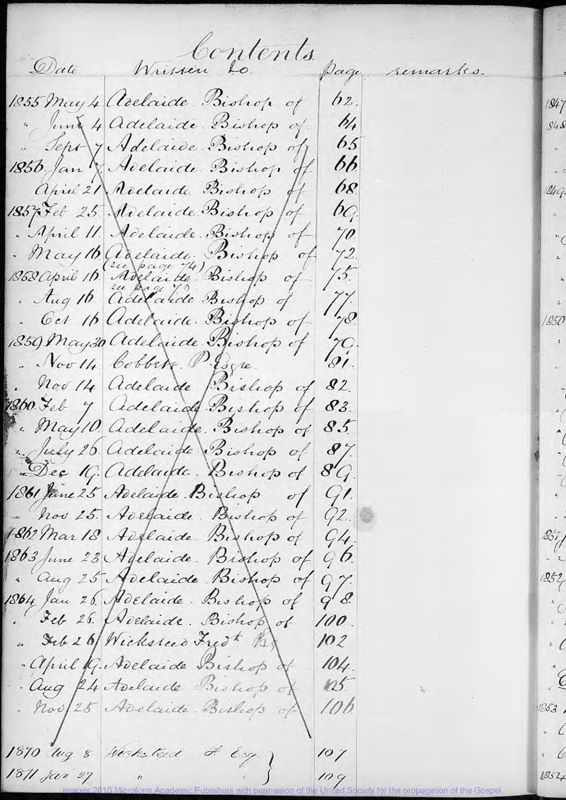 Contents
Date Written to. page. remarks.
1855 May 4 Adelaide. Bishop of 62.
" June 4 Adelaide. Bishop of 64
" Sept 7 Adelaide. Bishop of 65
1856 Jan 7 Adelaide. Bishop of 66
April 21 Adelaide. Bishop of 68.
1857 Feb 25 Adelaide. Bishop of 69.
" April 11 Adelaide. Bishop of 70
" May 16 Adelaide. Bishop of 72.
(see page 74)
1858 April 16 Adelaide. Bishop of 75.
see page
" Aug 16 Adelaide Bishop of 77.
" Oct 16 Adelaide. Bishop of 78
1859 May 30 Adelaide. Bishop of 79.
" Nov 14 Cobbett. P Esqre 81.
" Nov 14 Adelaide Bishop of 82.
1860 Feb 7 Adelaide Bishop of 83.
" May 10 Adelaide. Bishop of 85.
" July 26 Adelaide. Bishop of 87.
" Dec 19. Adelaide. Bishop of 89.
1861 June 25 Adelaide. Bishop of 91.
" Nov 25 Adelaide. Bishop of 92.
1862 Mar 18 Adelaide. Bishop of 94.
1863 June 23 Adelaide. Bishop of 96.
" Aug 25 Adelaide. Bishop of 97.
1864 Jan 26 Adelaide. Bishop of 98.
" Feb 26 Adelaide. Bishop of 100.
" Feb 26 Wicksteed Fredk 102
" April 19. Adelaide Bishop of 104.
" Aug 24 Adelaide Bishop of 105.
" Nov 25 Adelaide. Bishop of 106
1870 Aug 8 Wicksteed F. Esq. 107
1871 Jan 27 " " 109
Images 2010 Microform Academic Publishers with permission of the United Society for the propagation of the Gospel.